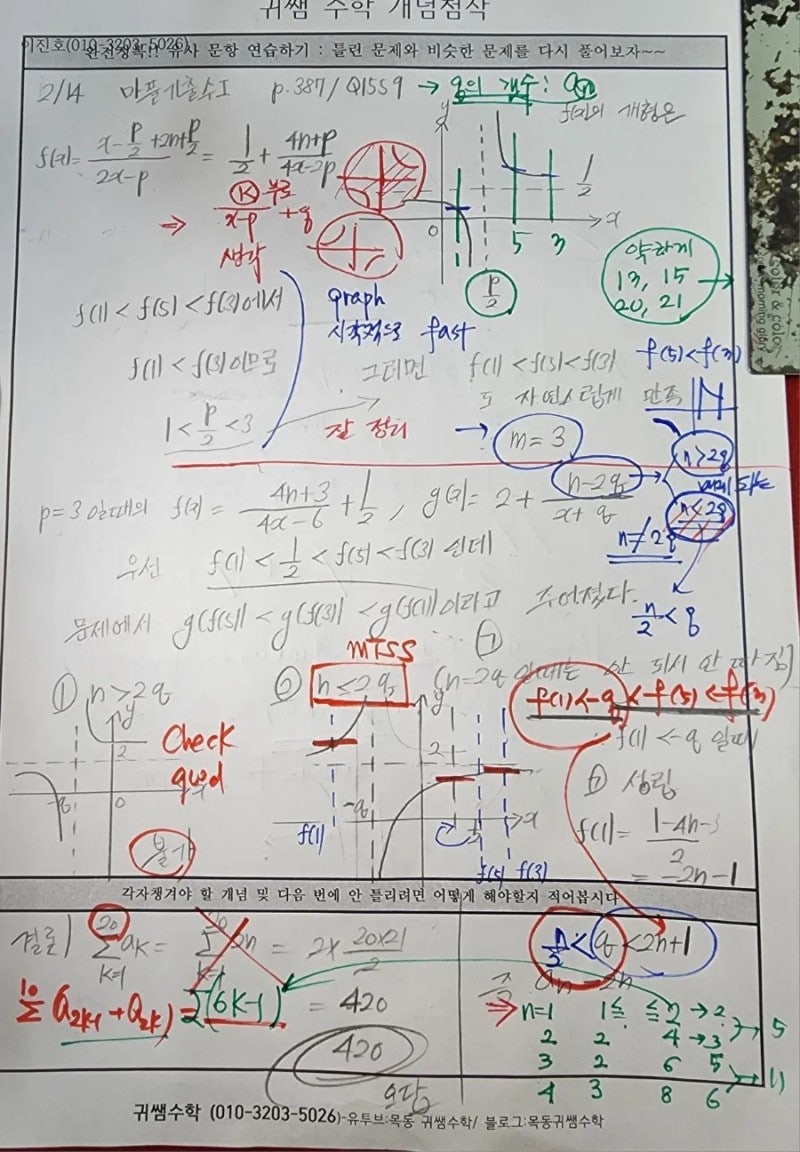 귀쌤 수학 개념첨삭
이진호(010-3203-5026)
완전정복!! 유사 문항 연습하기 : 틀린 문제와 비슷한 문제를 다시 풀어보자~~
2/14 마플기출수I p.387/Q1559 → q의 갯수: an
f(x)의 개형은
f(x)= (x-p/2+2n+p/2)/(2x-p) = 1/2 + (4n+p)/(4x-2p)
⇒ K/(x-p) + q 부로
생각
y 1/2 x 0 5 3 p/2
약하게
13, 15
20, 21 →
f(1)<f(5)<f(3)에서
graph
시각적으로 fast
f(1)<f(3)이므로
그러면 f(1)<f(5)<f(3)
도 자연스럽게 만족
f(5)<f(3)
1<p/2<3
잘 정리
→ m=3
n>2q
n<2q
n≠2q
n/2<q
p=3일때의 f(x)= (4n+3)/(4x-6) + 1/2, g(x)= 2 + (n-2q)/(x+q)
우선 f(1)<1/2<f(5)<f(3) 인데
문제에서 g(f(5))<g(f(3))<g(f(1))이라고 주어졌다.
MTSS
① n>2q
② n≤2q (n=2q 일때는 안 되시 안 따짐)
Check
quad
y 2 -q 0
불가
y 2 -q x
f(1) f(5) f(3)
f(1)<-q<f(5)<f(3)
f(1)<-q 일때
성립
f(1)= (1-4n-3)/2
= -2n-1
각자챙겨야 할 개념 및 다음 번에 안 틀리려면 어떻게 해야할지 적어봅시다
결론) 20 Σ k=1 aK = Σ 2n = 2× (20×21)/2
10 Σ (a2k-1 + a2k) = Σ(6K-1) = 420
420
오답
n/2<q<2n+1
an = 2n
⇒ n=1 1≤ ≤2 →2
2 2 4 →3 > 5
3 2 6 5
4 3 8 6 > 11
귀쌤수학 (010-3203-5026)-유투브:목동 귀쌤수학/ 블로그:목동귀쌤수학
color & color
morning glory